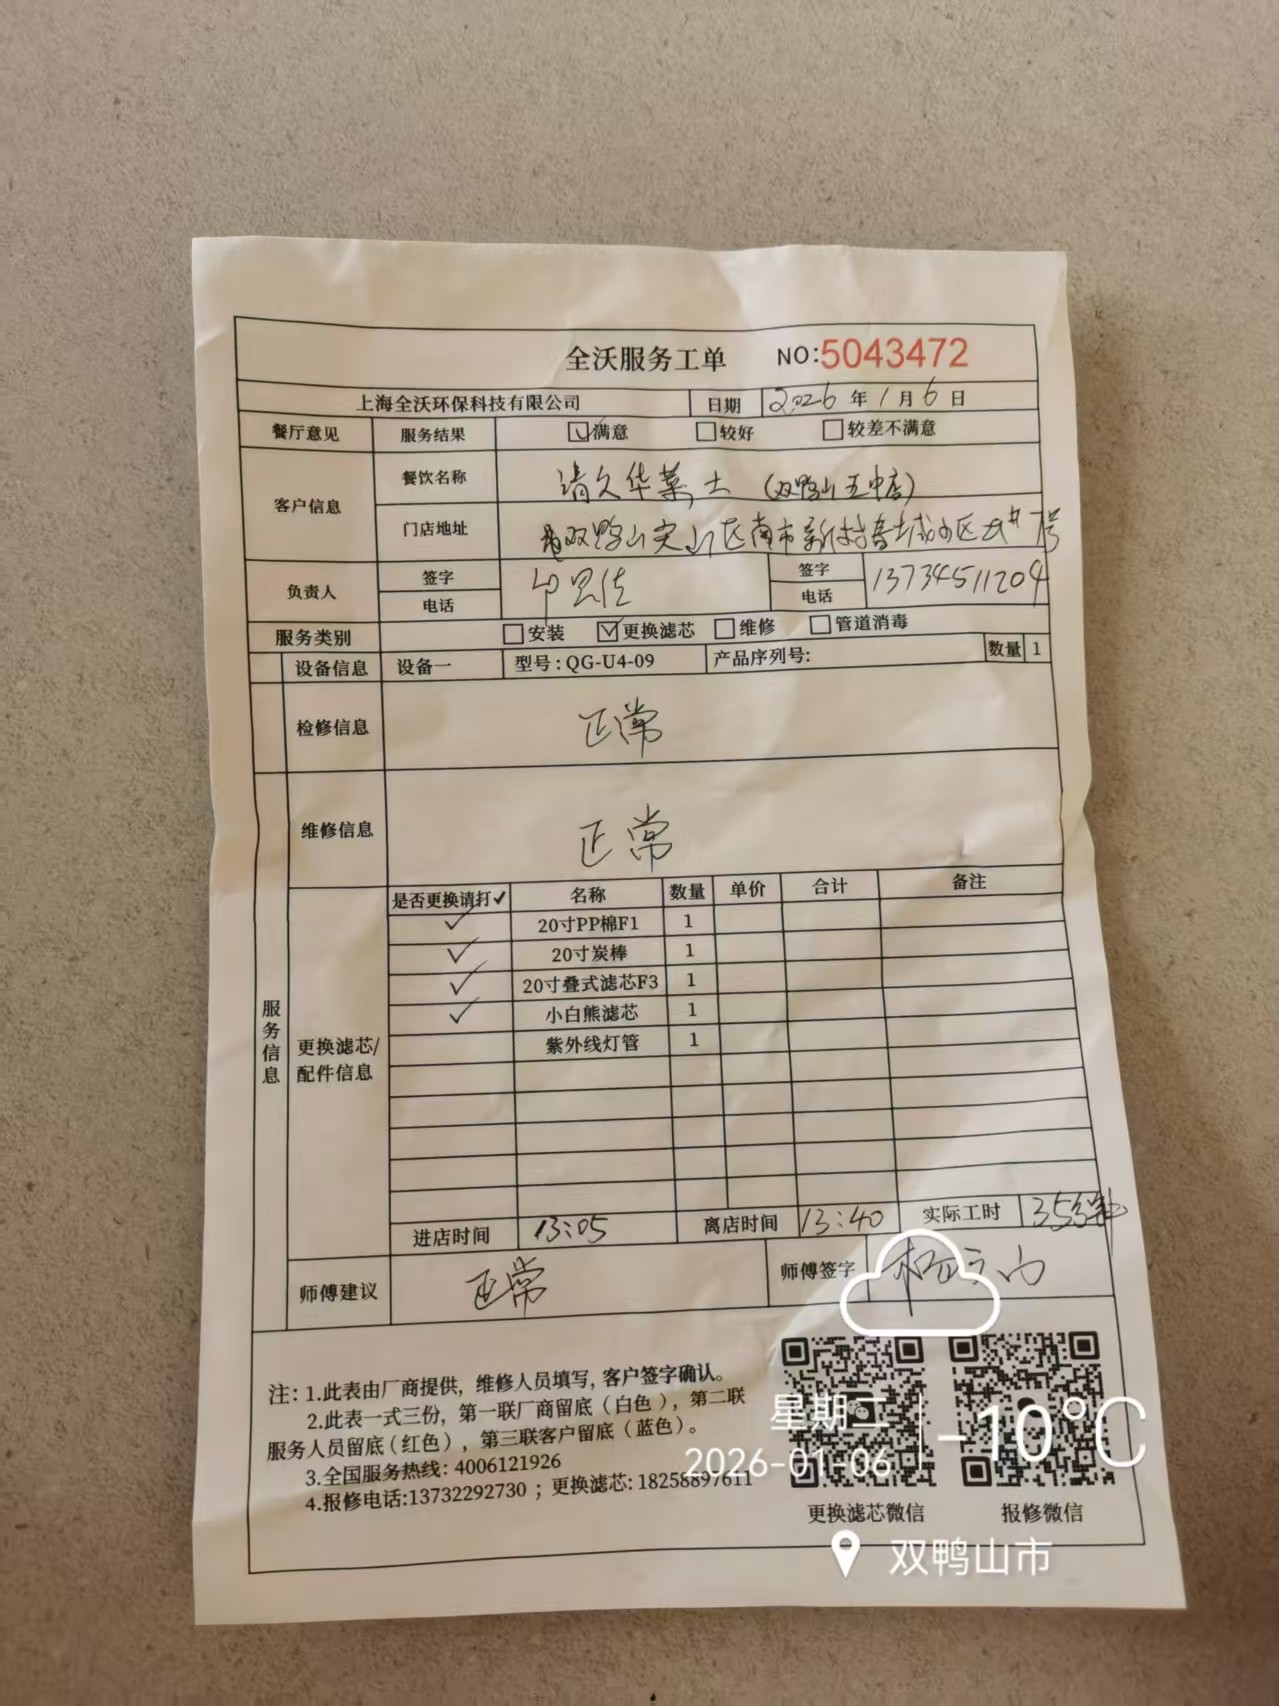 全沃服务工单 NO:5043472
上海全沃环保科技有限公司 日期 2026年1月6日
餐厅意见 服务结果 满意 较好 较差不满意
客户信息 餐饮名称 华莱士（双鸭山五中店）
门店地址 双鸭山尖山区南市新 小区 7号
负责人 签字 电话 签字 电话 13734511204
服务类别 安装 更换滤芯 维修 管道消毒
设备信息 设备一 型号：QG-U4-09 产品序列号： 数量 1
检修信息 正常
维修信息 正常
服务信息
更换滤芯/配件信息
是否更换请打✓ 名称 数量 单价 合计 备注
✓ 20寸PP棉F1 1
✓ 20寸炭棒 1
✓ 20寸叠式滤芯F3 1
✓ 小白熊滤芯 1
紫外线灯管 1
进店时间 13:05 离店时间 13:40 实际工时 35分钟
师傅建议 正常 师傅签字
注：1.此表由厂商提供，维修人员填写，客户签字确认。
2.此表一式三份，第一联厂商留底（白色），第二联
服务人员留底（红色），第三联客户留底（蓝色）。
3.全国服务热线：4006121926
4.报修电话:13732292730；更换滤芯: 18258897611
更换滤芯微信 报修微信
星期二 -10°C
2026-01-06
双鸭山市